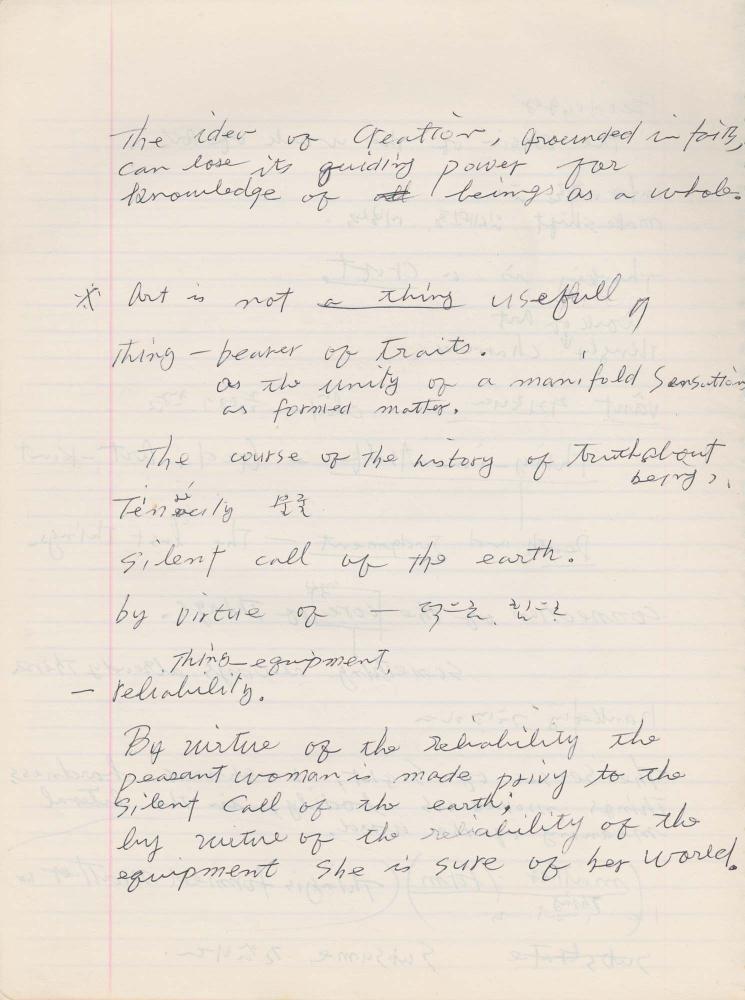 The idea of Creation, grounded in faith,
can lose its guiding power for
knowledge of all beings as a whole.
* Art is not a thing usefull
thing – bearer of traits.
as the unity of a manifold Sensations
as formed matter.
The course of the history of truth about
beings.
Tenacily
silent call of the earth.
by virtue of — 덕으로, 힘으로
Thing–equipment.
— reliability.
By virtue of the reliability the
peasant woman is made privy to the
silent Call of the earth;
by virtue of the reliability of the
equipment she is sure of her world.